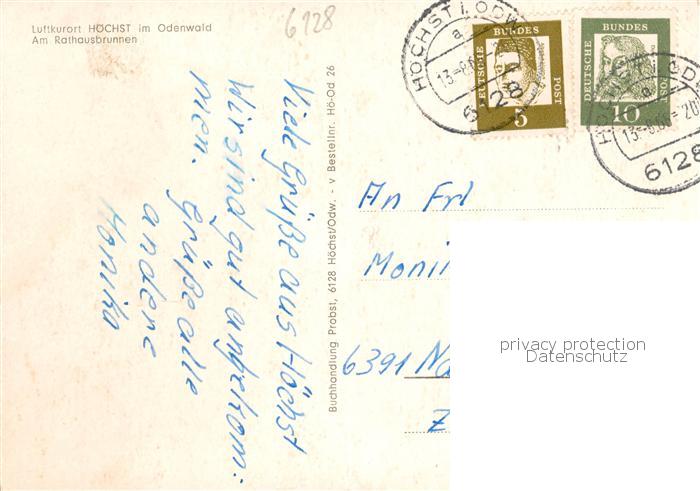 Luftkurort HÖCHST im Odenwald
Am Rathausbrunnen
6128
Viele Grüße aus Höchst
Wir sind gut angekom:
men. Grüße alle
andere
Monika
Buchhandlung Probst, 6128 Höchst/Odw. - v Bestellnr. Hö-Od 26
HÖCHST I. ODW
a
13-8.6
6128
BUNDES
DEUTSCHE
POST
5
BUNDES
DEUTSCHE
POST
10
a
13-8.66-20
6128
An Frl
Moni
6391 Na
Z
privacy protection
Datenschutz